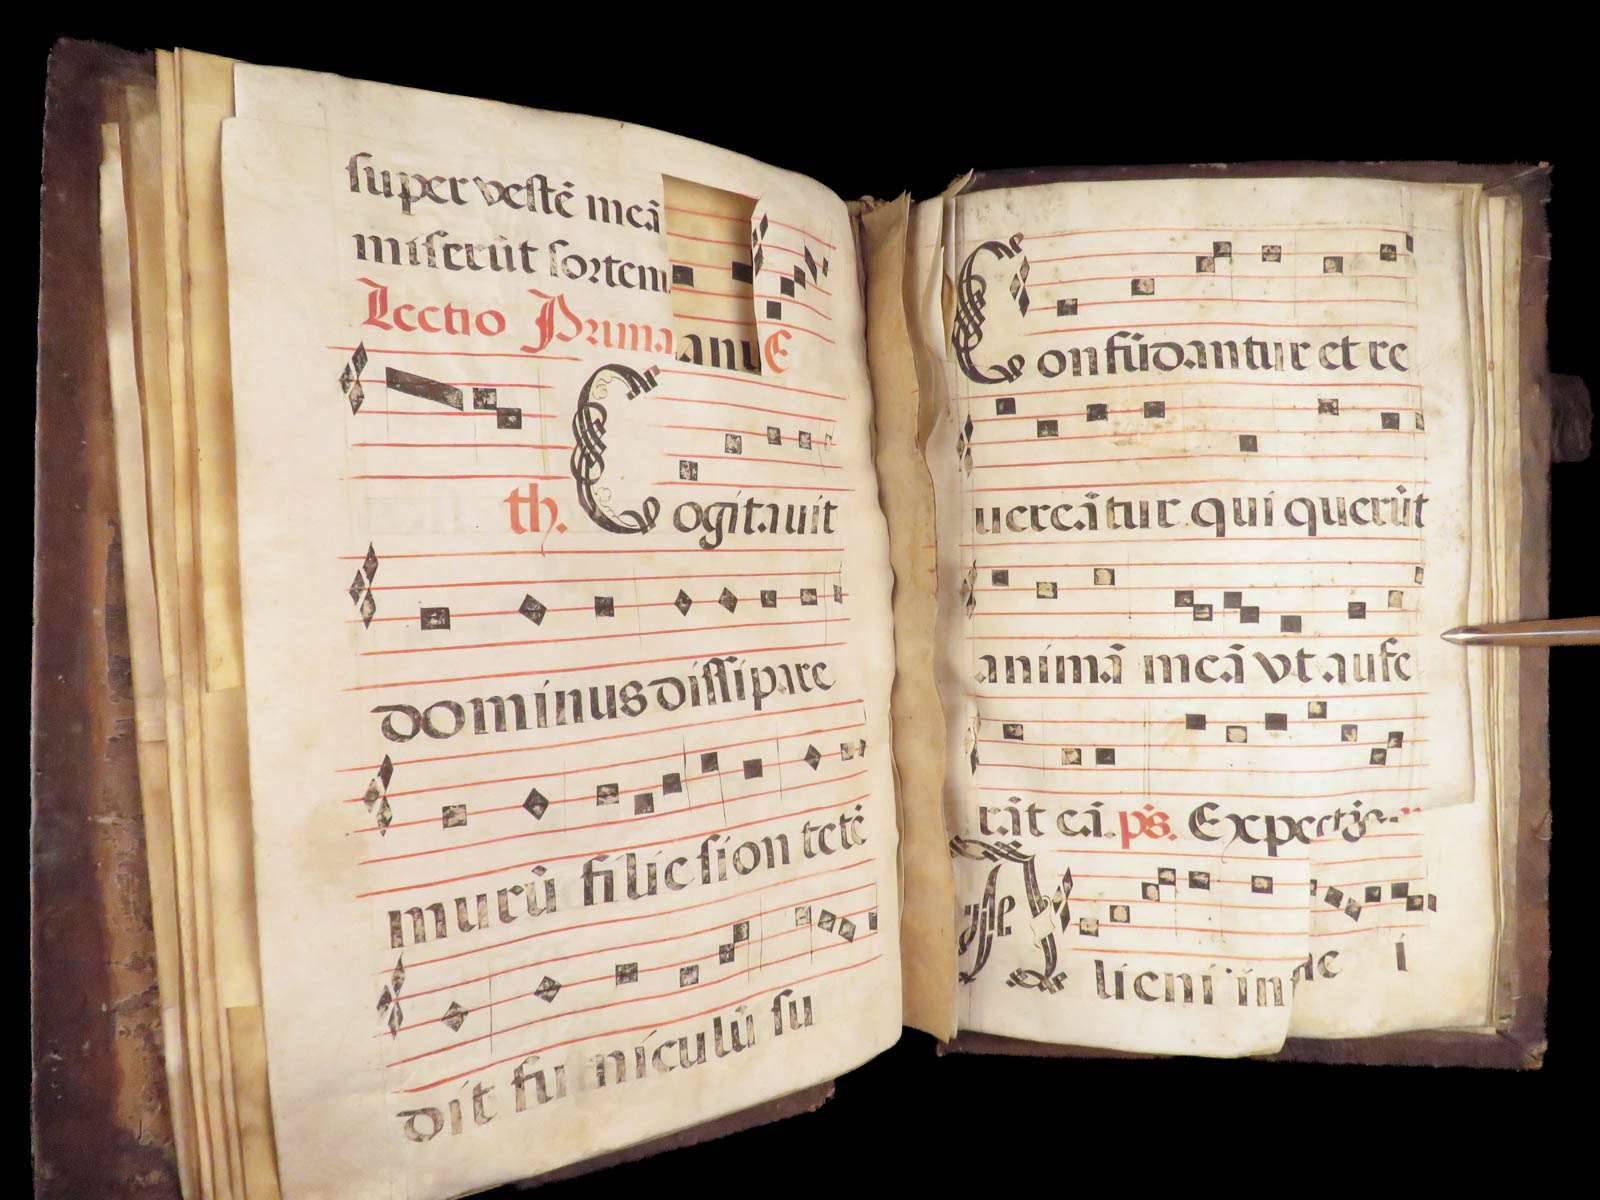 super vestē meā
miserūt sortem
Lectio Prima anu E
th. Cogitauit
dominus dissipare
murū filie sion tetē
dit funiculū su
Confūdantur et re
uereātur qui querūt
animā meā vt aufe
rāt eā. ps. Expectās
Alieni in